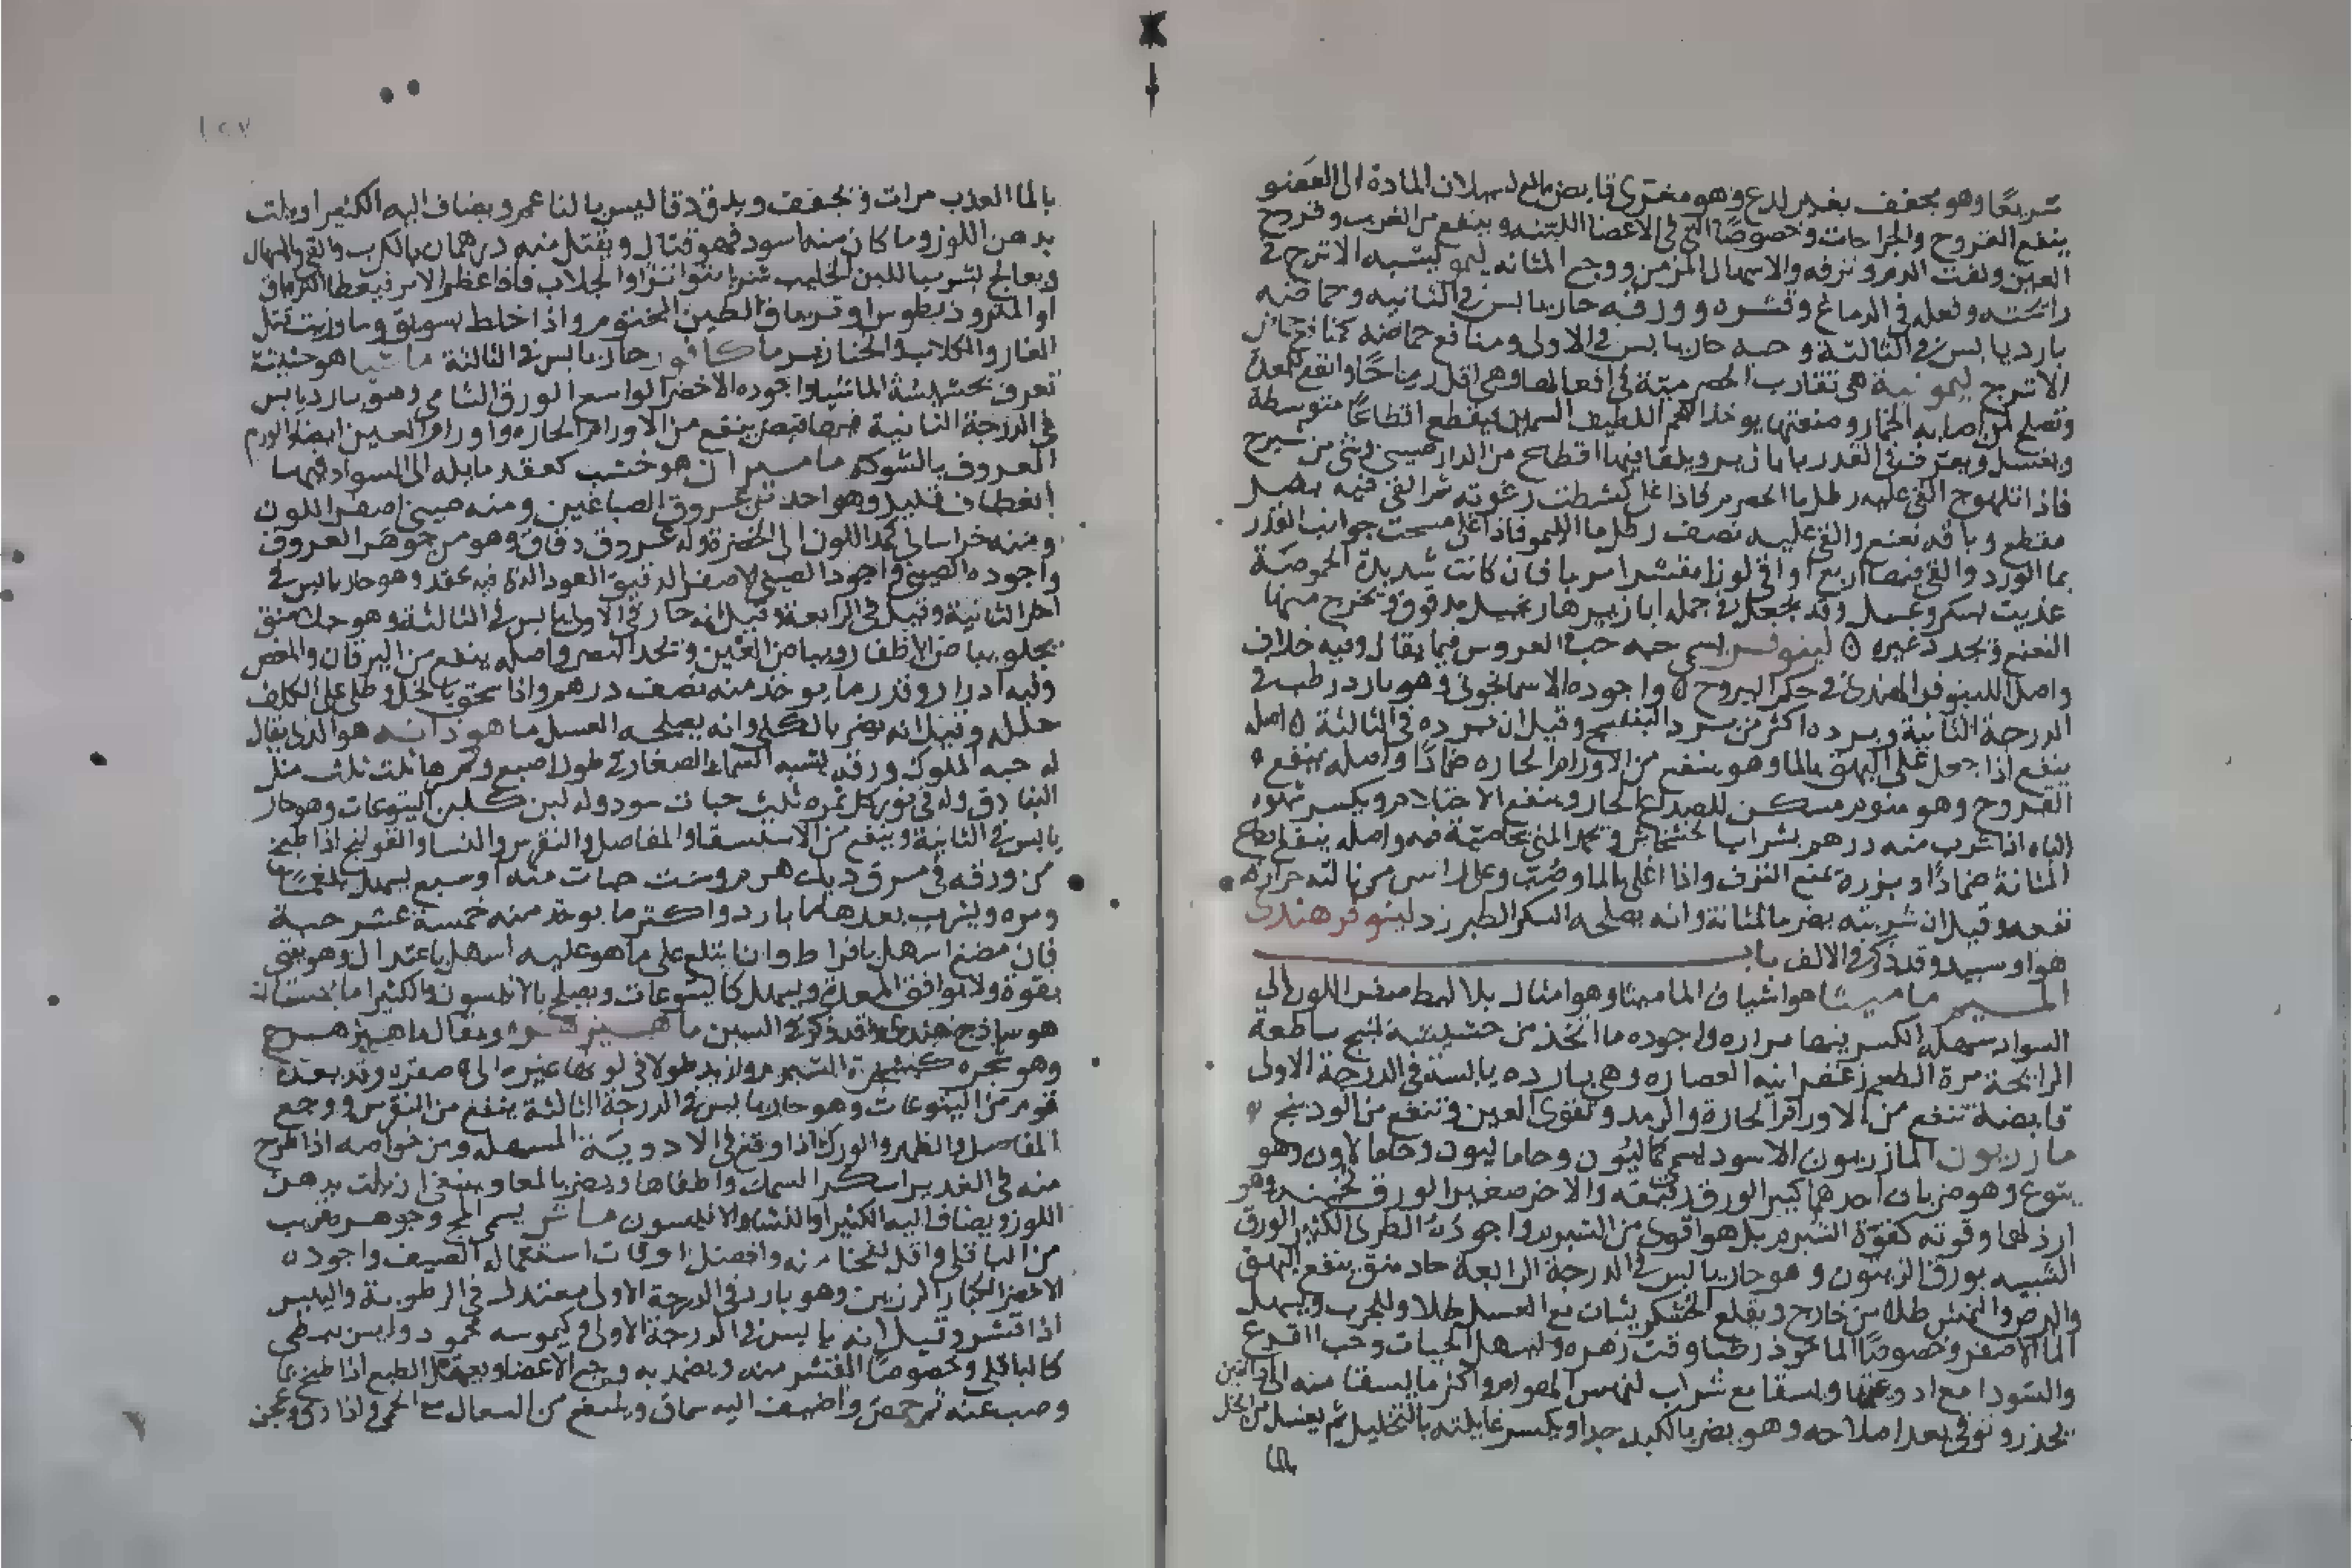 سريعًا وهو مجفف بغير لدع وهو مغرى قابض مانع لسيلان المادة الى العضو
ينفع القروح والجراحات وخصوصًا التى فى الاعضا اللينه وينفع من الغرب وقروح
العين ونفث الدم ونزفه والاسهال المزمن ووجع المثانه ليمو يشبه الاترج فى
رائحته وفعله فى الدماغ وقشره وورقه حار يابس فى الثانيه وحماضه
بارد يابس فى الثالثة وحبه حار يابس فى الاولى ومنافع حماضه كمنافع حماض
الاترج ليمونية هى تقارب الحصرمية فى افعالها وهى اقل رياحًا وانفع للمعدة
وتصلح لمن اصابه الخمار وصنعتها يوخذ اللحم اللطيف السمين فيقطع اقطاعًا متوسطة
ويغسل ويعرق فى القدر بابازير ويلقا فيها اقطاع من الدارصينى وشى من سيرج
فاذا تلهوج القى عليه رطل ما الحصرم فاذا غلى كشطت رغوته ثم القى فيه بصل
مقطع وباقه نعنع والقى عليه نصف رطل ما الليمو فاذا غلى مسحت جوانب القدر
بما الورد والقى فيها اربع اواقى لوز مقشر مربا فان كانت شديدة الحموضة
عذبت بسكر وعسل وقد يجعل فى جمله ابازيرها زنجبيل مدقوق ويخرج منها
النعنع ويجدد غيره ه لينوفر يسمى حبه حب العروس فيما يقال وفيه خلاف
واصل اللينوفر الهندى فى حكم اليبروح ه واجوده الاسمانجونى وهو بارد رطب فى
الدرجة الثانية وبرده اكثر من برد البنفسج وقيل ان برده فى الثالثة ه اصله
ينفع اذا جعل على البهق بالما وهو ينفع من الاورام الحاره ضمادًا واصله ينفع ه
القروح وهو منوم مسكن للصداع الحار وينفع الاحتلام ويكسر شهوه
الباه اذا شرب منه درهم بشراب الخشخاش ويجمد المنى بخاصية فيه واصله ينفع اوجاع
المثانة ضمادًا وبزره يمنع النزف واذا اغلى بالما وصب على راس من نالته حراره
نفعه وقيل ان شربته يضر بالمثانة وانه يصلحه السكر الطبرزد لينوفر هندى
هو اوسبيد وقد ذكر فى الالف باب
الميم ماميثا هو اشياف الماميثا وهو امثال بلاليط صفر اللون الى
السواد سهل الكسر فيها مراره واجوده ما اتخذ من حشيشة لمنبج ساطعة
الرايحة مرة الطعم زعفرانيه العصاره وهى بارده يابسة فى الدرجة الاولى
قابضة تنفع من الاورام الحارة والرمد وتقوى العين وتنفع من الوردينج ه
مازريون المازريون الاسود يسمى خماليون وحاماليون وخامالاون وهو
يتوع وهو ضربان احدهما كبير الورق رقيقه والاخر صغير الورق ثخينه وهو
ارذلهما وقوته كقوة الشبرم بل هو اقوى من الشبرم واجوده الطرى الكثير الورق
الشبيه بورق الزيتون وهو حار يابس فى الدرجة الرابعة حاد منق ينفع البهق
والبرص والنمش طلا من خارج ويقلع الخشكريشات مع العسل طلا وللجرب ويسهل
الما الاصفر وخصوصًا الماخوذ رطبا وقت زهره ويسهل الحيات وحب القرع
والسودا مع ادويتها ويسقا مع شراب لنهش الهوام واكثر ما يسقا منه الى دانقين
يحذر وتوقى بعد اصلاحه وهو يضر بالكبد جدا ويكسر غايلته بالتخليل ثم يغسل من الخل
بالما
١٥٧
بالما العذب مرات ويجفف ويدق دقا ليس بالناعم ويضاف اليه الكثيرا ويلت
بدهن اللوز وما كان منه اسود فهو قتال ويقتل منه درهمان بالكرب والقى والاسهال
ويعالج بشرب اللبن الحليب شربا متواترا والجلاب فاذا عظم الامر فيعطا الترياق
او المثروديطوس او ترياق الطين المختوم واذا خلط بسويق وما وزيت قتل
الفار والكلاب والخنازير ما كافور حار يابس فى الثالثة ماميثا هو حشيشة
تعرف بحشيشة الماميثا واجوده الاخضر الواسع الورق الشامى وهو بارد يابس
فى الدرجة الثانية فيها قبض ينفع من الاورام الحاره واورام العين ايضا والورم
المعروف بالشوكة ماميران هو خشب كعقد مايله الى السواد فيها
انعطاف قليل وهو احد من عروق الصباغين ومنه صينى اصفر اللون
ومنه خراسانى كمد اللون الى الخضرة وله عروق دقاق وهو من جوهر العروق
واجوده الصينى واجود الصينى الاصفر الدقيق العود الذى فيه عقد وهو حار يابس فى
اخر الثانية وقيل فى الرابعة وقيل انه حار فى الاولى يابس فى الثالثة وهو جلا منق
يجلو بياض الاظفار وبياض العين ويحد البصر واصله ينفع من اليرقان والمغص
وفيه ادرار وقدر ما يوخذ منه نصف درهم واذا سحق بالخل وطلى على الكلف
حلله وقيل انه يضر بالكلى وانه يصلحه العسل ماهودانه هو الذى يقال
له حبه الملوك ورقه يشبه السماك الصغار فى طول اصبع وثمرها ثلث ثلث مثل
البنادق وله فى نور كل ثمره ثلث حبات سود وله لبن كلبن اليتوعات وهو حار
يابس فى الثانية وينفع من الاستسقا والمفاصل والنقرس والنسا والقولنج اذا طبخ
من ورقه فى مرق ديك هرم وست حبات منه او سبع يسهل بلغمًا
ومره ويشرب بعدها ما بارد واكثر ما يوخذ منه خمسة عشر حبة
فان مضغ اسهل بافراط وان ابتلع على ما هو عليه اسهل باعتدال وهو يقى
بقوة ولا توافق المعدة ويسهل كاليتوعات ويصلح بالانيسون والكثيرا
هو ساذج هندى وقد ذكر فى السين ماهيزهره ويقال ماهيزهرج
وهو شجره كشجرة الشبرم وازيد طولا فى لونها غبره الى صفره وقد يعده
قوم من اليتوعات وهو حار يابس فى الدرجة الثالثة ينفع من النقرس ووجع
المفاصل والظهر والورك اذا وقع فى الادوية المسهله ومن خواصه اذا طرح
منه فى الغدير اسكر السمك واطفاها ويضر بالمعا وينبغى ان يلت بدهن
اللوز ويضاف اليه الكثيرا والنشا والانيسون ماش يسمى المج وجوهره قريب
من الباقلى واقل نفخا منه وافضل اوقات استعماله الصيف واجوده
الاخضر الكبار الرزين وهو بارد فى الدرجة الاولى معتدل فى الرطوبة واليبس
اذا قشر وقيل انه يابس فى الدرجة الاولى وكيموسه محمود وليس ببطى
كالباقلى وخصوصًا المقشر منه ويضمد به وجع الاعضا ويعقل الطبع اذا طبخ بما
وصب عنه ثم حمض واضيف اليه سماق وينفع من السعال مع الحمى واذا دق وعجن